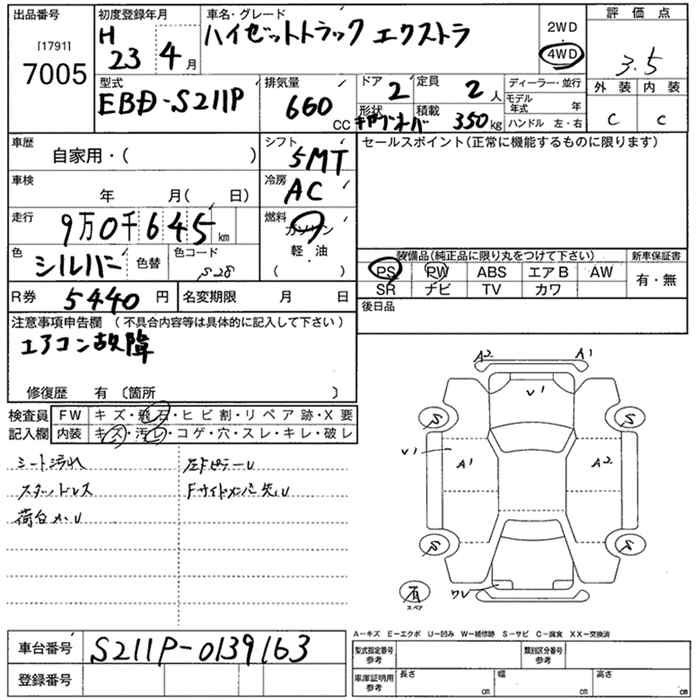 出品番号 [1791] 7005
初度登録年月 H 23年 4月
車名・グレード ハイゼットトラック エクストラ
2WD 4WD
評価点 3.5
外装 C 内装 C
型式 EBD-S211P
排気量 660 CC
ドア 2 定員 2人
形状 積載 350kg
ディーラー・並行
モデル年式 年
ハンドル 左・右
車歴 自家用・( )
シフト 5MT
セールスポイント(正常に機能するものに限ります)
車検 年 月( 日)
冷房 AC
走行 9万0千645km
燃料 ガソリン 軽・油 ( )
色 シルバー 色替 色コード S28
装備品(純正品に限り丸をつけて下さい) 新車保証書
PS PW ABS エアB AW 有・無
SR ナビ TV カワ
R券 5440円 名変期限 月 日
後日品
注意事項申告欄 (不具合内容等は具体的に記入して下さい)
エアコン故障
修復歴 有 〔箇所 〕
検査員 FW キズ・飛石・ヒビ割・リペア跡・X要
記入欄 内装 キズ・汚レ・コゲ・穴・スレ・キレ・破レ
シート汚れ
スタッドレス
A2 A1
V1
S S
V1 A1 A2
S S
有 スペア
A-キズ E-エクボ U-凹み W-補修跡 S-サビ C-腐食 XX-交換済
車台番号 S211P-0139163
登録番号
型式指定番号 参考 類別区分番号 参考
車庫証明用 参考 長さ cm 幅 cm 高さ cm